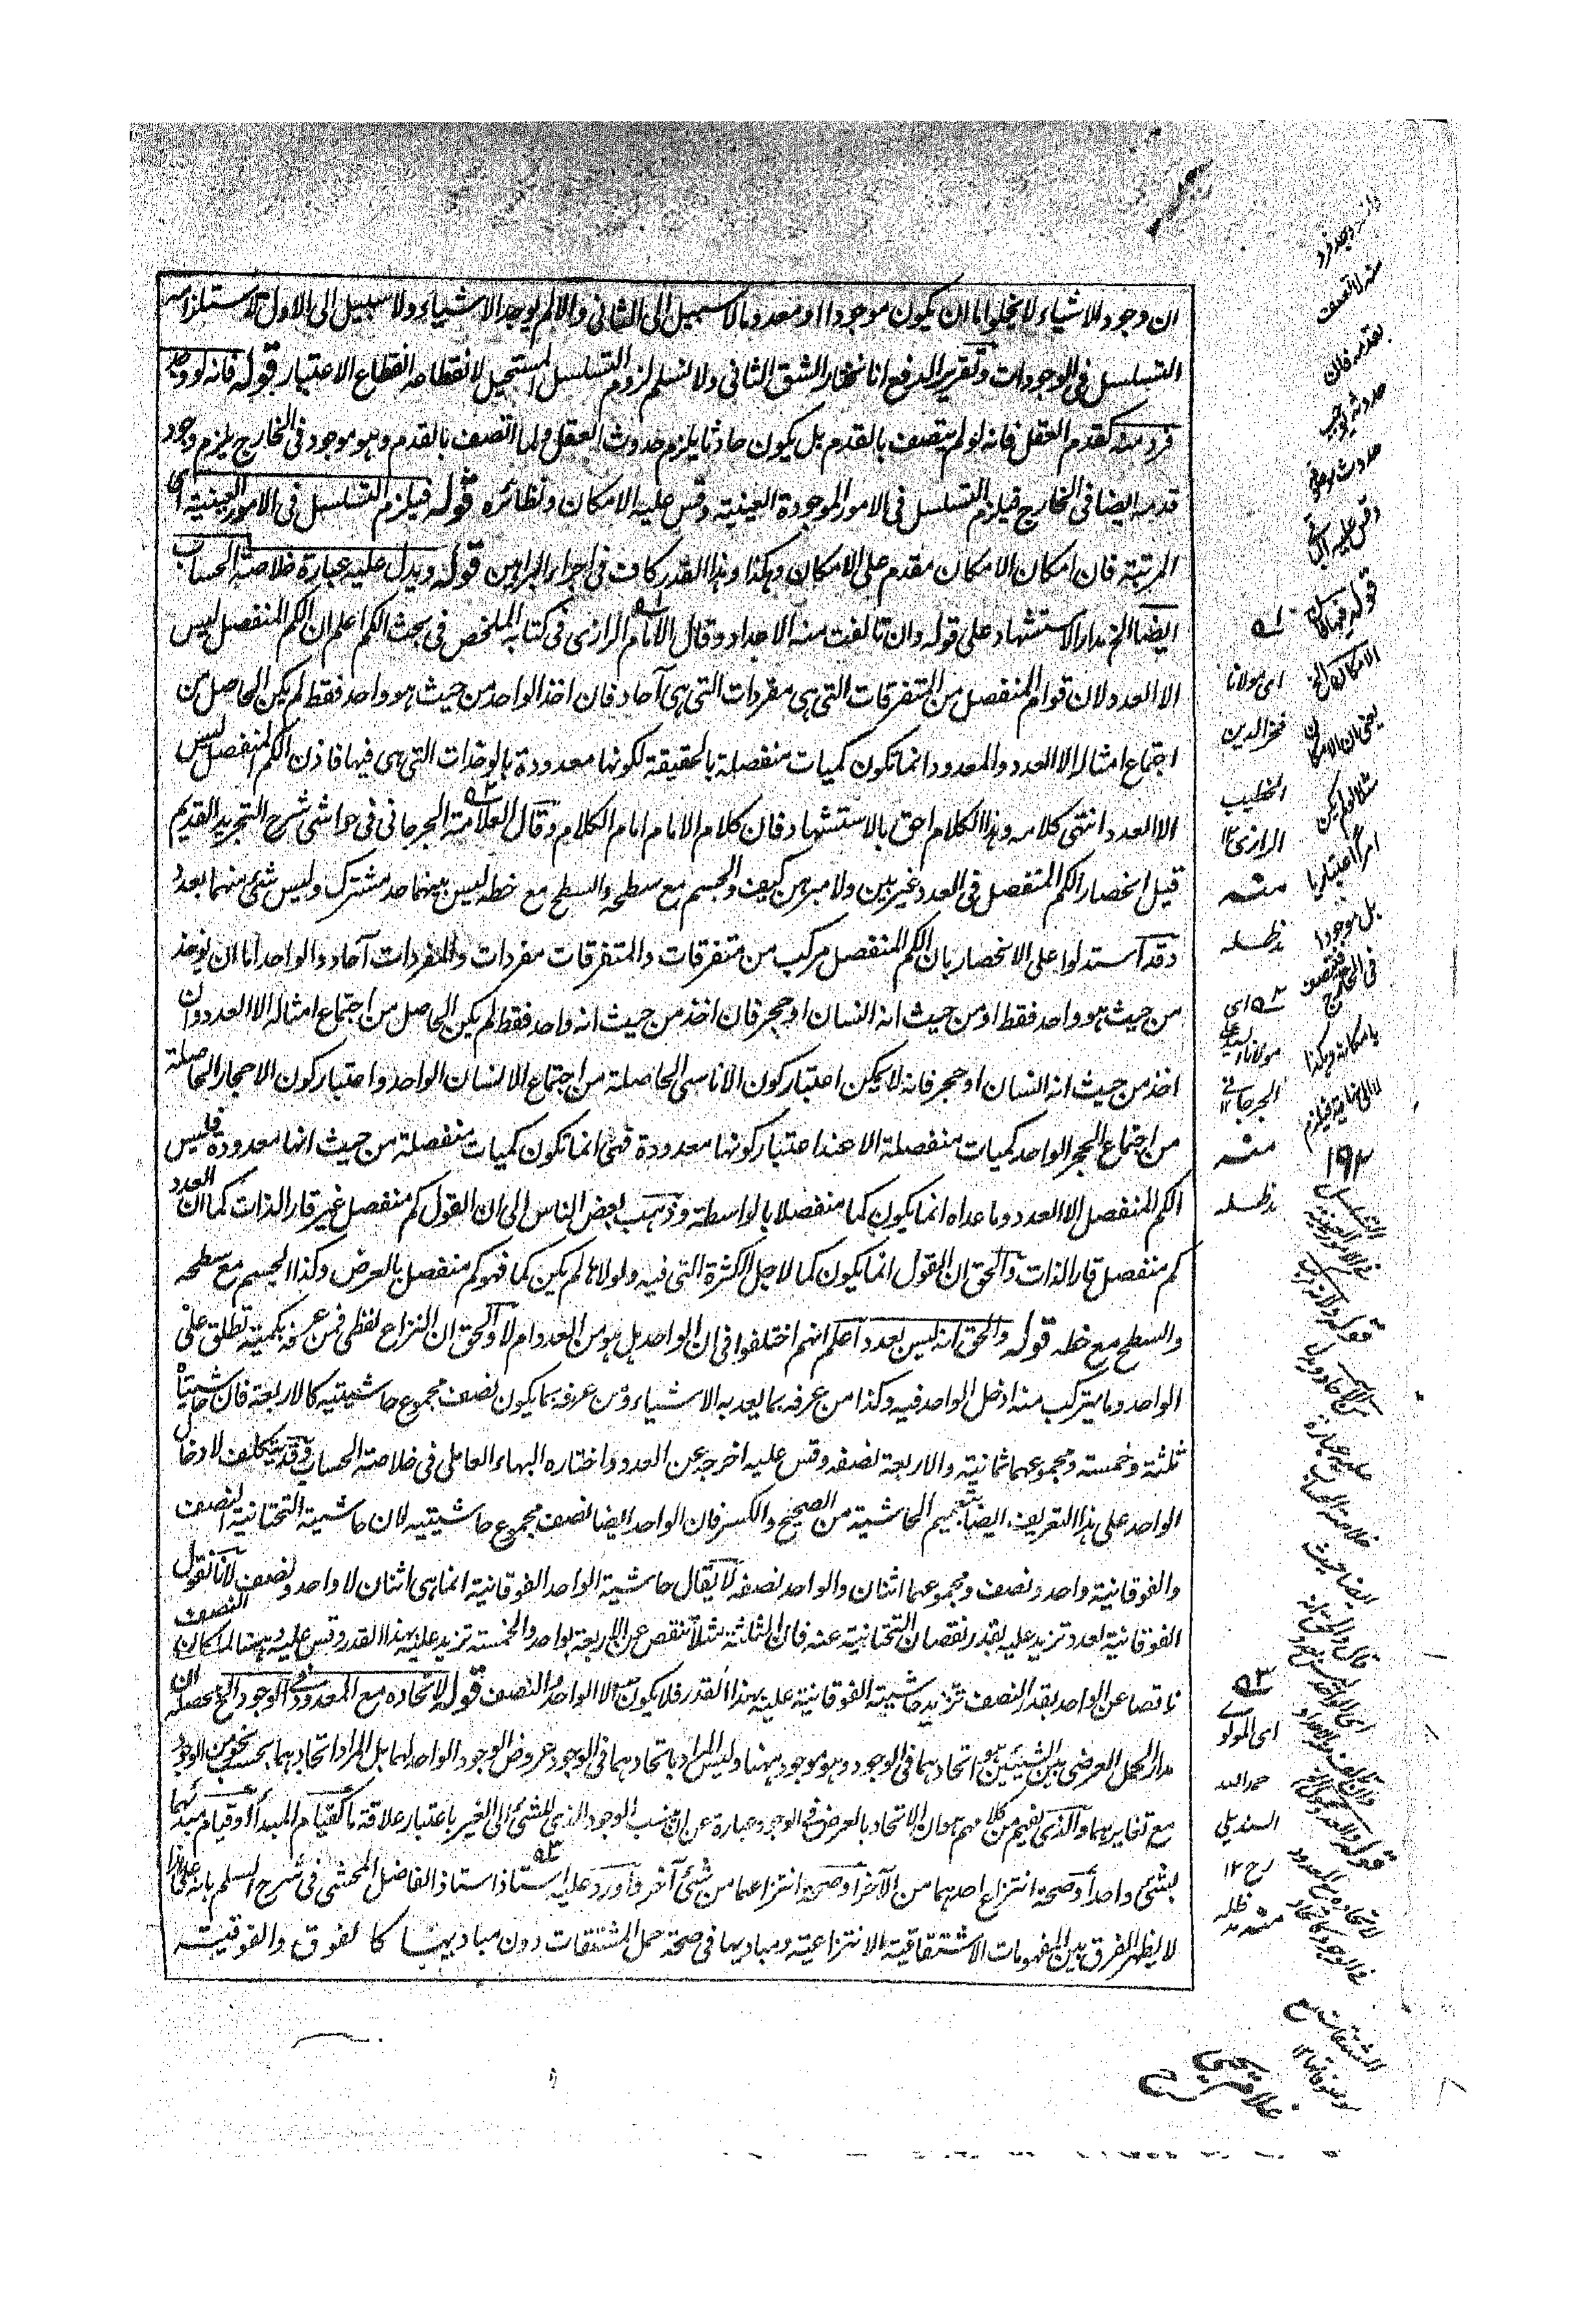 ان وجود الاشياء لا يخلو اما ان يكون موجودا او معدوما لا سبيل الى الثانى والا لم يوجد الاشياء ولا سبيل الى الاول لاستلزامه
التسلسل فى الوجودات وتقرير الدفع انا نختار الشق الثانى ولا نسلم لزوم التسلسل المستحيل لانقطاعه بانقطاع الاعتبار قوله فانه لو وجد
فرد منه كقدم العقل فانه لو لم يتصف بالقدم بل يكون حادثا يلزم حدوث العقل ولما اتصف بالقدم وهو موجود فى الخارج يلزم وجود
قدمه ايضا فى الخارج فيلزم التسلسل فى الامور الموجودة العينية وقس عليه الامكان ونظائره قوله فيلزم التسلسل فى الامور العينية اى
المرتبة فان امكان الامكان مقدم على الامكان وهكذا وهذا القدر كاف فى اجراء البراهين قوله ويدل عليه عبارة خلاصة الحساب
ايضا الخ مدار الاستشهاد على قوله وان تالفت منه الاعداد وقال الامام الرازى فى كتابه الملخص فى بحث الكم اعلم ان الكم المنفصل ليس
الا العدد لان قوام المنفصل من المتفرقات التى هى مفردات التى هى آحاد فان اخذ الواحد من حيث هو واحد فقط لم يكن الحاصل من
اجتماع امثاله الا العدد والمعدود انما تكون كميات منفصلة بالحقيقة لكونها معدودة بالوحدات التى هى فيها فاذن الكم المنفصل ليس
الا العدد انتهى كلامه وهذا الكلام احق بالاستشهاد فان كلام الامام امام الكلام وقال العلامة الجرجانى فى حواشى شرح التجريد القديم
قيل انحصار الكم المنفصل فى العدد غير بين ولا مبرهن كيف والجسم مع سطحه والسطح مع خطه ليس بينهما حد مشترك وليس شئ منهما بعدد
وقد استدلوا على الانحصار بان الكم المنفصل مركب من متفرقات والمتفرقات مفردات والمفردات آحاد والواحد اما ان يوخذ
من حيث هو واحد فقط او من حيث انه انسان او حجر فان اخذ من حيث انه واحد فقط لم يكن الحاصل من اجتماع امثاله الا العدد وان
اخذ من حيث انه انسان او حجر فانه لا يمكن اعتبار كون الاناسى الحاصلة من اجتماع الانسان الواحد واعتبار كون الاحجار الحاصلة
من اجتماع الحجر الواحد كميات منفصلة الا عند اعتبار كونها معدودة فهى انما تكون كميات منفصلة من حيث انها معدودة فليس
الكم المنفصل الا العدد وما عداه انما يكون كما منفصلا بالواسطة وذهب بعض الناس الى ان القول كم منفصل غير قار الذات كما ان العدد
كم منفصل قار الذات والحق ان القول انما يكون كما لاجل الكثرة التى فيه ولولاها لم يكن كما فهو كم منفصل بالعرض وكذا الجسم مع سطحه
والسطح مع خطه قوله والحق انه ليس بعدد اعلم انهم اختلفوا فى ان الواحد هل هو من العدد ام لا والحق ان النزاع لفظى فمن عرفه بكمية تطلق على
الواحد وما يتركب منه ادخل الواحد فيه وكذا من عرفه بما يعد به الاشياء ومن عرفه بما يكون نصف مجموع حاشيتيه كالاربعة فان حاشيتاه
ثلثة وخمسة ومجموعهما ثمانية والاربعة نصفه وقس عليه اخرجه عن العدد واختاره البهاء العاملى فى خلاصة الحساب وقد يتكلف لادخال
الواحد على هذا التعريف ايضا بتعميم الحاشية من الصحيح والكسر فان الواحد ايضا نصف مجموع حاشيتيه لان حاشية التحتانية النصف
والفوقانية واحد ونصف ومجموعهما اثنان والواحد نصفه لا يقال حاشية الواحد الفوقانية انما هى اثنان لا واحد ونصف لانا نقول
الفوقانية لعدد تزيد عليه بقدر نقصان التحتانية عنه فان الثلثة مثلا تنقص عن الاربعة بواحد والخمسة تزيد عليه بهذا القدر وقس عليه وههنا لما كان النصف
ناقصا عن الواحد بقدر النصف تزيد حاشيته الفوقانية عليه بهذا القدر فلا يكون الا الواحد والنصف قوله لاتحاده مع المعدود فى الوجود الخ محصله ان
مدار الحمل العرضى بين الشيئين هو اتحادهما فى الوجود وهو موجود ههنا وليس المراد باتحادهما فى الوجود عروض الوجود الواحد لهما بل المراد اتحادهما بحسب نحو من الوجود
مع تغايرهما والذى يفهم من كلامهم هو ان الاتحاد بالعرض فى الوجود عبارة عن ان ينسب الوجود الذى للشئ الى الغير باعتبار علاقة ما كقيام المبدأ او قيام مبدئهما
بشئ واحد او صحة انتزاع احدهما من الآخر او صحة انتزاعهما من شئ آخر واورد عليه استاذ استاذ الفاضل المحشى فى شرح السلم بانه على هذا
لا يظهر الفرق بين المفهومات الاشتقاقية الانتزاعية ومباديها فى صحة حمل المشتقات دون مباديها كالفوق والفوقية
منه لا تصف
بقدمه فان
وقس عليه الباقى
قوله فيما كان
الامكان الخ
يعنى ان الامكان
مثلا لو لم يكن
امرا اعتباريا
بل موجودا
فى الخارج يتصف
بامكانه وهكذا
لا الى نهاية فيلزم
التسلسل
فى الامور العينية
۱۹۲
ا ه
اى مولانا
فخر الدين
الخطيب
الرازى ۱۲
منه
مد ظله
۲ ه اى
مولانا السيد
الجرجانى ۱۲
منه
مد ظله
۳ ه
اى المولوى
حمد الله
السنديلى
رح ۱۲
منه مد ظله